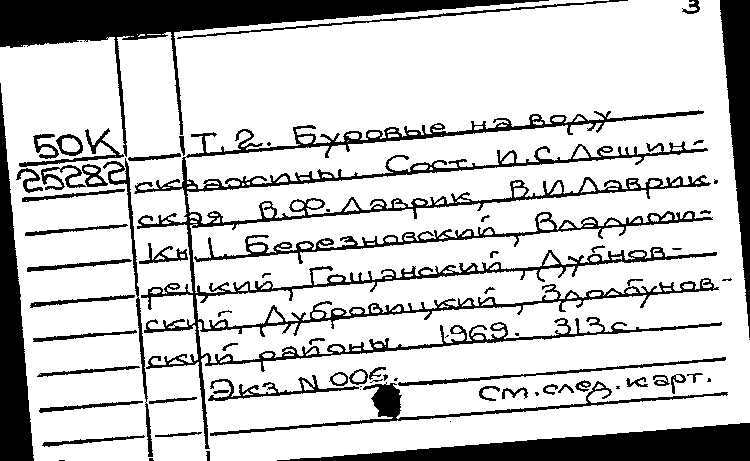 3
50К Т. 2. Буровые на воду
25282 скважины. Сост. И.С. Лещин-
ская, В.Ф. Лаврик, В.И. Лаврик.
Кн 1. Березновский, Владими-
рецкий, Гощанский, Дубнов-
ский, Дубровицкий, Здолбунов-
ский районы. 1969. 313 с.
Экз. N 006.
См. след. карт.